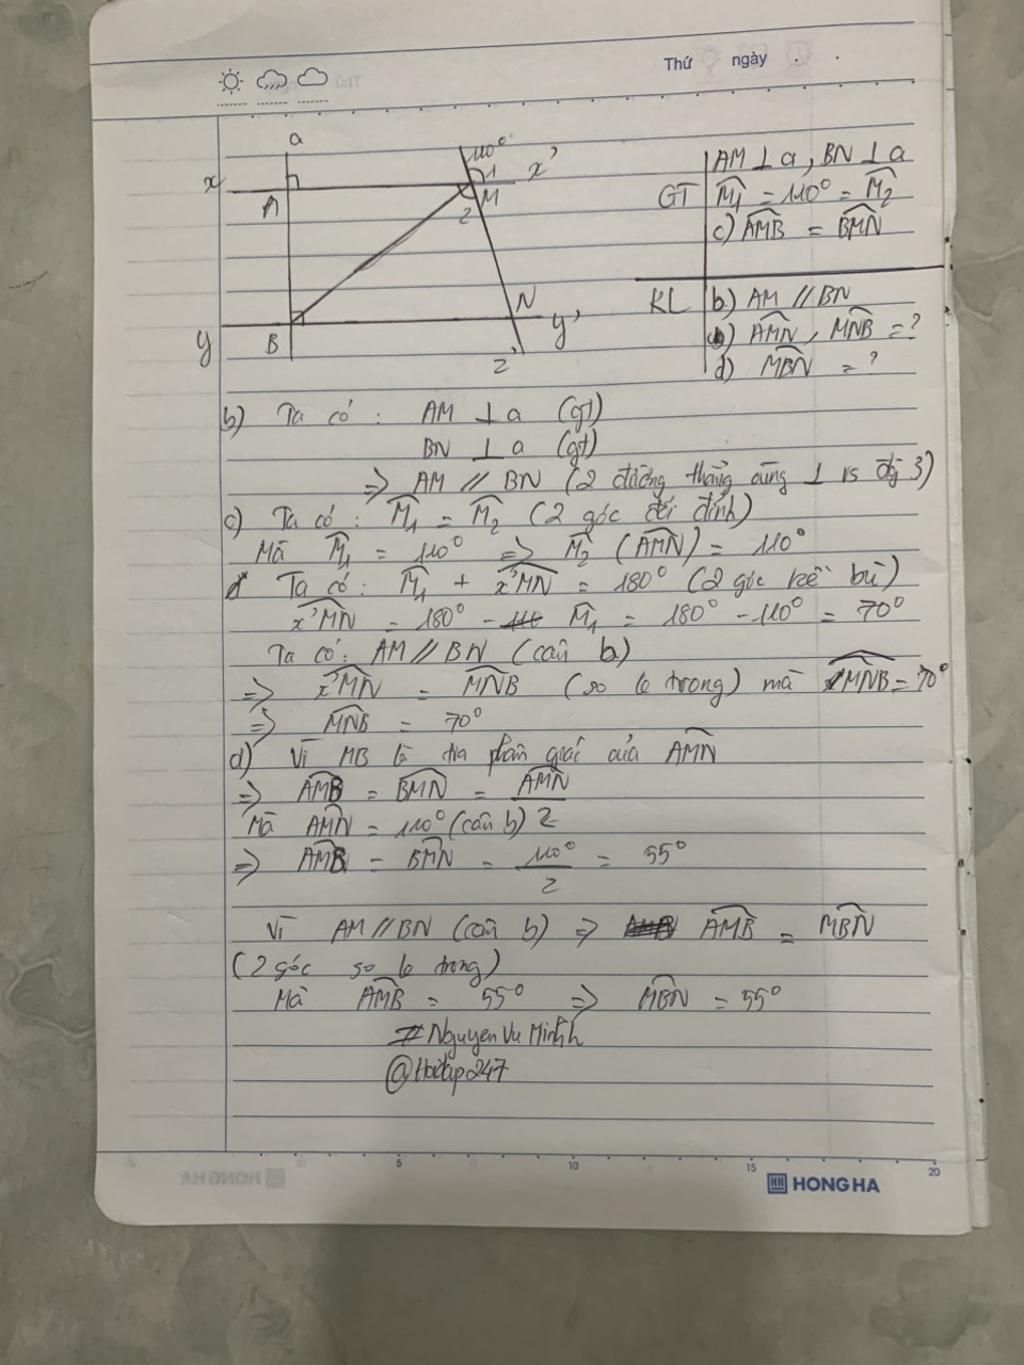 Thứ ngày
a
110°
x 1 x'
A M
2
N
y B y'
z'
AM ⊥ a, BN ⊥ a
GT M̂1 = 110° = M̂2
c) AMB = BMN
KL b) AM // BN
c) AMN, MNB = ?
d) MBN = ?
b) Ta có : AM ⊥ a (gt)
BN ⊥ a (gt)
=> AM // BN (2 đường thẳng cùng ⊥ vs đg 3)
c) Ta có : M̂1 = M̂2 (2 góc đối đỉnh)
Mà M̂1 = 110° => M̂2 (AMN) = 110°
Ta có: M̂1 + x'MN = 180° (2 góc kề bù)
x'MN = 180° - M̂1 = 180° - 110° = 70°
Ta có: AM // BN (câu b)
=> x'MN = MNB (so le trong) mà x'MNB = 70°
=> MNB = 70°
d) Vì MB là tia phân giác của AMN
=> AMB = BMN = AMN
Mà AMN = 110° (câu b) 2
=> AMB = BMN = 110° = 55°
2
Vì AM // BN (câu b) => AMB = MBN
(2 góc so le trong)
Mà AMB = 55° => MBN = 55°
#Nguyen Vu Minh
@Hoidap247
5 10 15 20
HONG HA